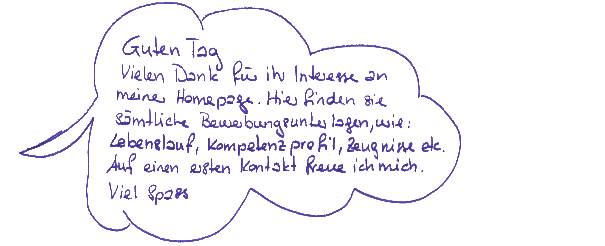 Guten Tag
Vielen Dank für ihr Interesse an
meiner Homepage. Hier finden sie
sämtliche Bewerbungsunterlagen, wie:
Lebenslauf, Kompetenzprofil, Zeugnisse etc.
Auf einen ersten Kontakt freue ich mich.
Viel Spass